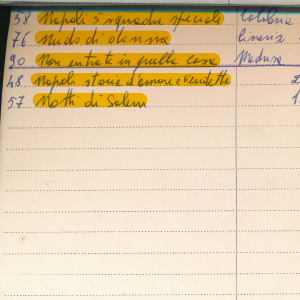 58 Napoli squadra speciale Colibri
76 Nudo di donna Cineriz
90 Non entrate in quella casa Medusa
48 Napoli storia d'amore e vendetta 2
57 Notti di Salem 1